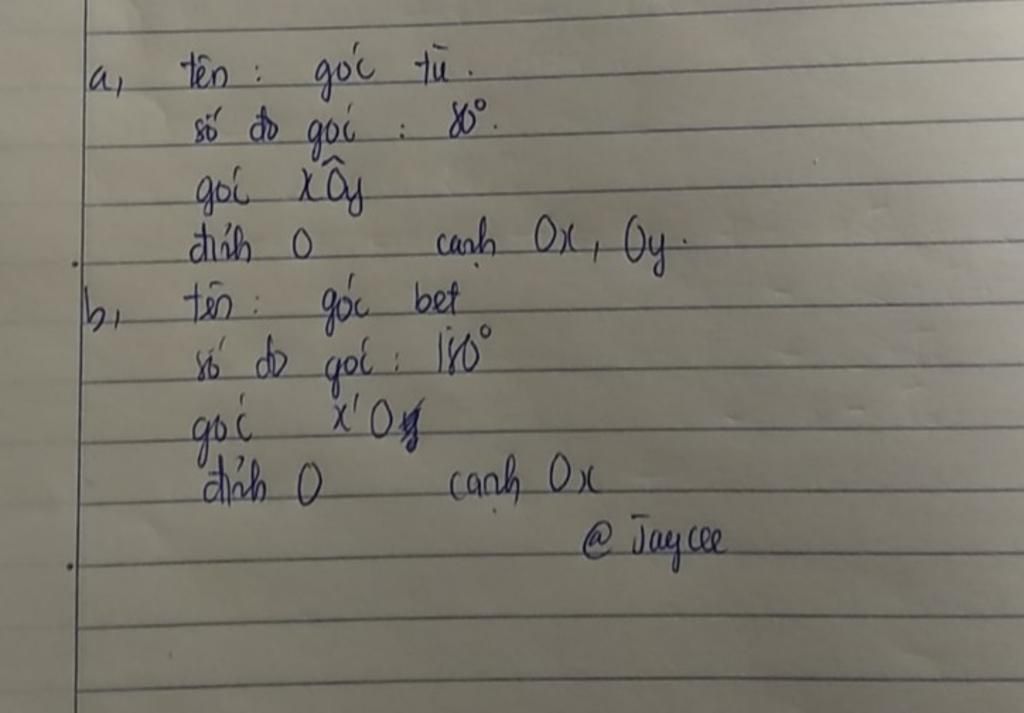 a, tên : góc tù.
số đo góc : 80°.
góc xÔy
đỉnh O cạnh Ox, Oy.
b, tên : góc bet
số đo góc : 180°
góc x'O
đỉnh O cạnh Ox
@ Jaycee